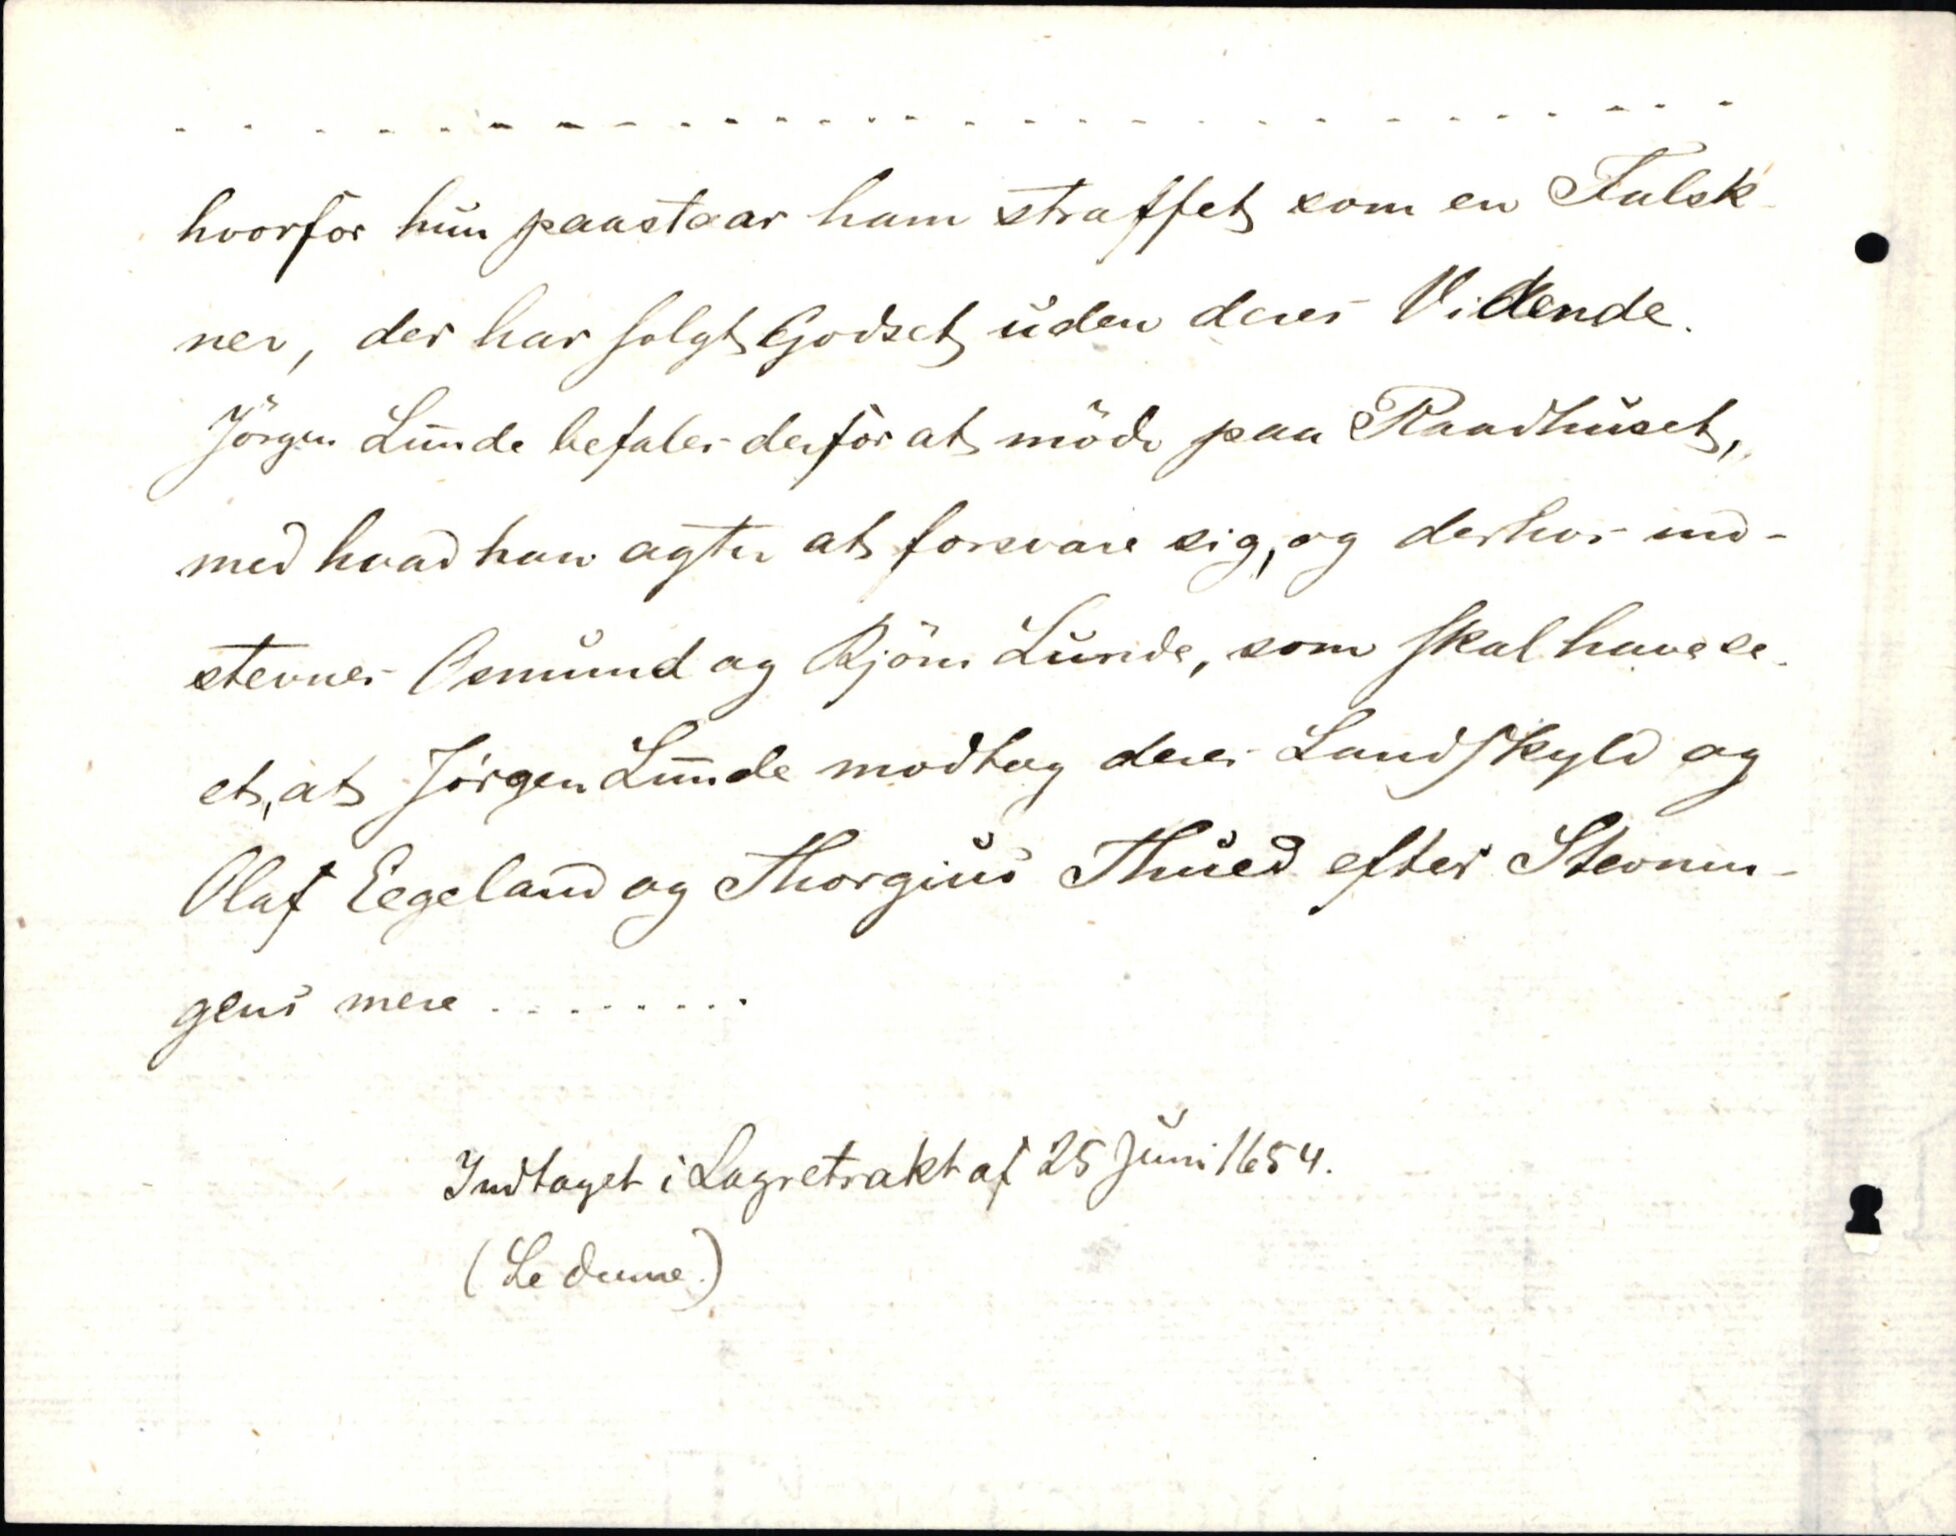 - - - - - - - - - - - - - - - - - - - - - - - - - - - - - -
hvorfor hun paastaar ham straffet som en Falsk-
ner, der har solgt Godset uden deres Vidende.
Jörgen Lunde befales derfor at möde paa Raadhuset,
med hvad han agter at forsvare sig, og derhos ind-
stevnes Osmund og Björn Lunde, som skal have se-
et, at Jörgen Lunde modtog deres Landskyld og
Olaf Eegeland og Thorgius Thued efter Stevnin-
gens mere . . . . . . . . .
Indtaget i Lagretrakt af 25 Juni 1654.
(Se denne.)